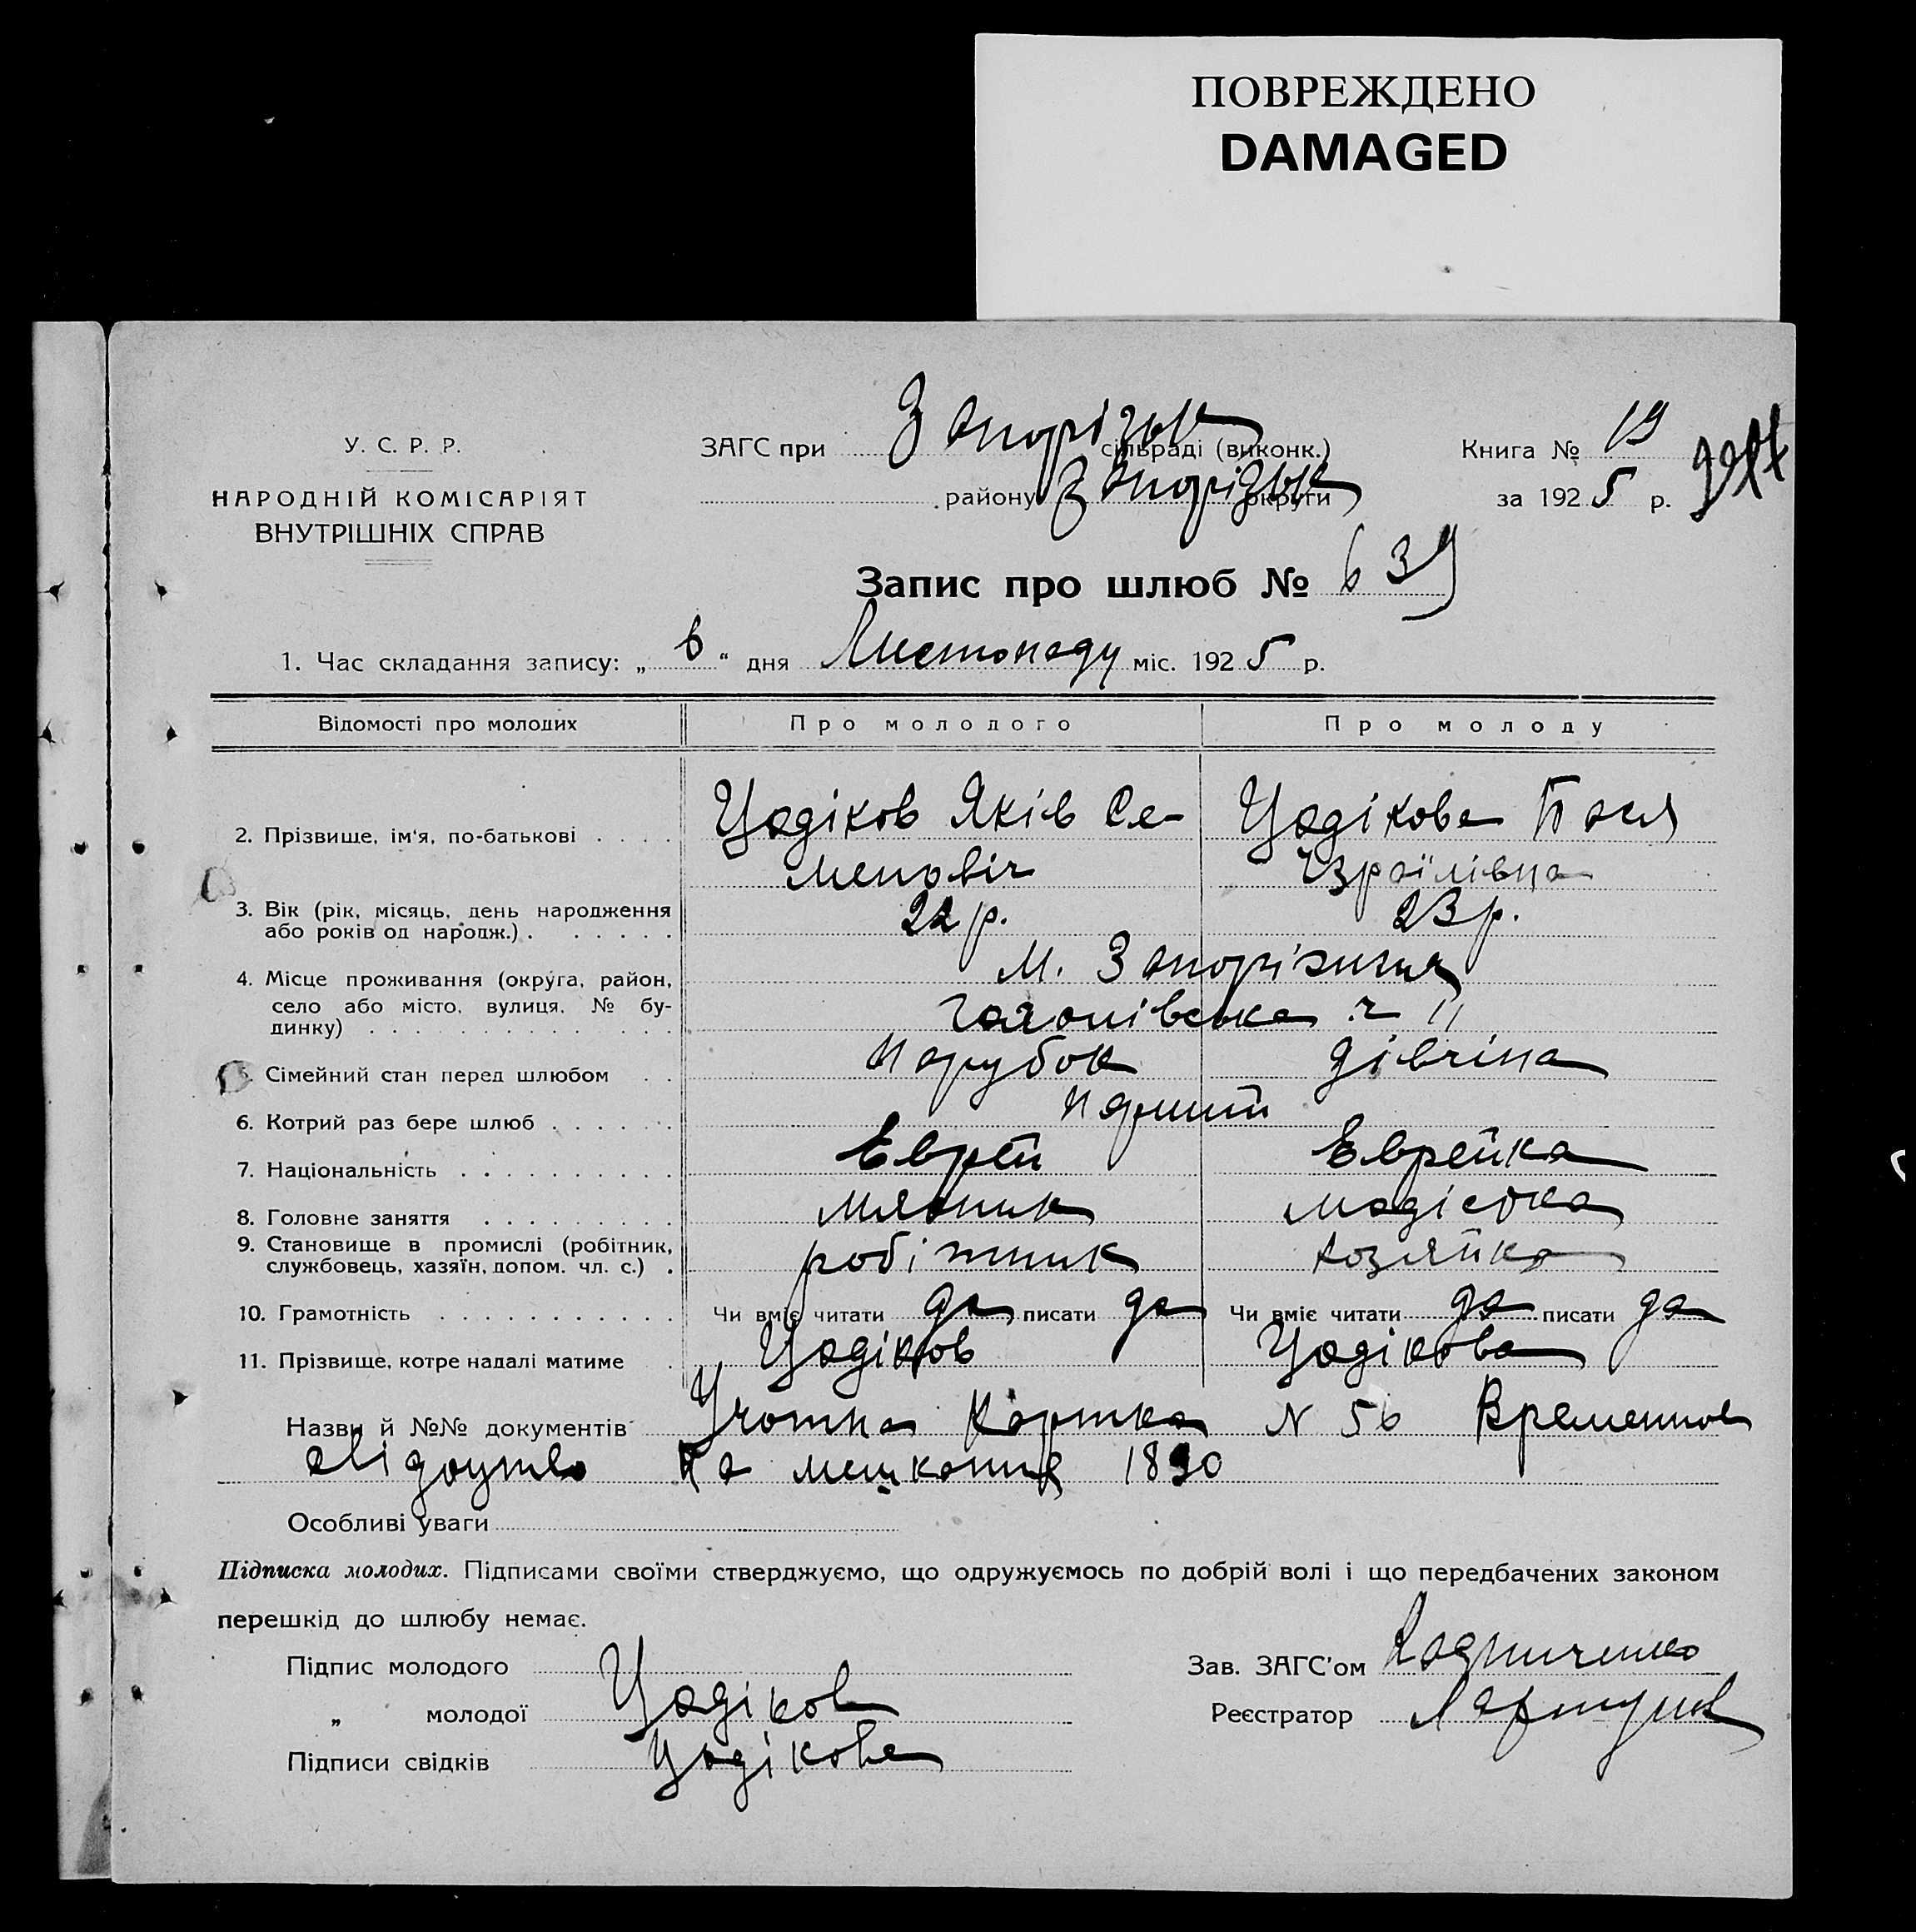 ПОВРЕЖДЕНО
DAMAGED
У. С. Р. Р.
НАРОДНІЙ КОМІСАРІЯТ
ВНУТРІШНІХ СПРАВ
ЗАГС при Запорізьк сільраді (виконк.)
району Запорізьк округи
Книга № 19
за 1925 р.
Запис про шлюб № 639
1. Час складання запису: „ 6 “ дня Листопаду міс. 1925 р.
Відомості про молодих Про молодого Про молоду
2. Прізвище, ім‘я, по-батькові . . . . Цадіков Яків Се- Цадікова Бася
меновіч Ізраїлівна
3. Вік (рік, місяць, день народження
або років од народж.) . . . . . . 22 р. 23 р.
4. Місце проживання (округа, район,
село або місто, вулиця, № бу-
динку) . . . . . . . . . . . . . м. Запоріжжя
ч 11
5. Сімейний стан перед шлюбом . . парубок дівчіна
6. Котрий раз бере шлюб . . . . . . перший
7. Національність . . . . . . . . . . Еврей Еврейка
8. Головне заняття . . . . . . . . . модістка
9. Становище в промислі (робітник,
службовець, хазяїн, допом. чл. с.) . робітник хозяйка
10. Грамотність . . . . . . . . . . . Чи вміє читати да писати да Чи вміє читати да писати да
11. Прізвище, котре надалі матиме . Цадіков Цадікова
Назви й №№ документів Учотна Картка N 56 Временное
свідоцтво на мешкання 1890
Особливі уваги
Підписка молодих. Підписами своїми стверджуємо, що одружуємось по добрій волі і що передбачених законом
перешкід до шлюбу немає.
Підпис молодого
„ молодої Цадіков
Підписи свідків Цадікова
Зав. ЗАГС’ом
Реєстратор